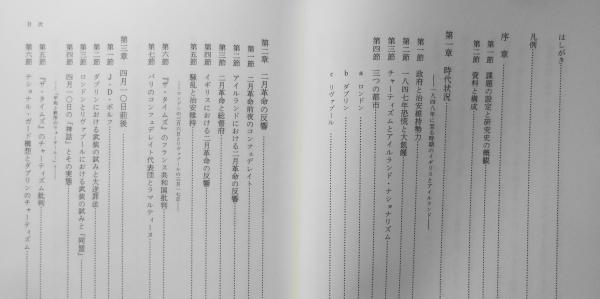 はしがき
凡例
序章
第一節 課題の設定と研究史の概観
第二節 資料と構成
第一章 時代状況
──一八四八年に至る時期のイギリスとアイルランド──
第一節 政府と治安維持勢力
第二節 一八四七年恐慌と大飢饉
第三節 チャーティズムとアイルランド・ナショナリズム
第四節 三つの都市
a ロンドン
b ダブリン
c リヴァプール
第二章 二月革命の反響
第一節 二月革命前夜のコンフェデレイト
第二節 アイルランドにおける二月革命の反響
第三節 二月革命と総督府
第四節 イギリスにおける二月革命の反響
第五節 騒乱と治安維持
第六節 『ザ・タイムズ』のフランス共和国批判
第七節 パリのコンフェデレイト代表団とラマルティーヌ
第三章 四月一〇日前後
第一節 J・D・ボルフ
第二節 ダブリンにおける武装の試みと大逆罪法
第三節 ロンドンとリヴァプールにおける武装の試みと「同盟」
第四節 四月一〇日の「神話」とその実態
第五節 『ザ・タイムズ』のチャーティズム批判
第六節 ナショナル・ガード構想とダブリンのチャーティズム
目次